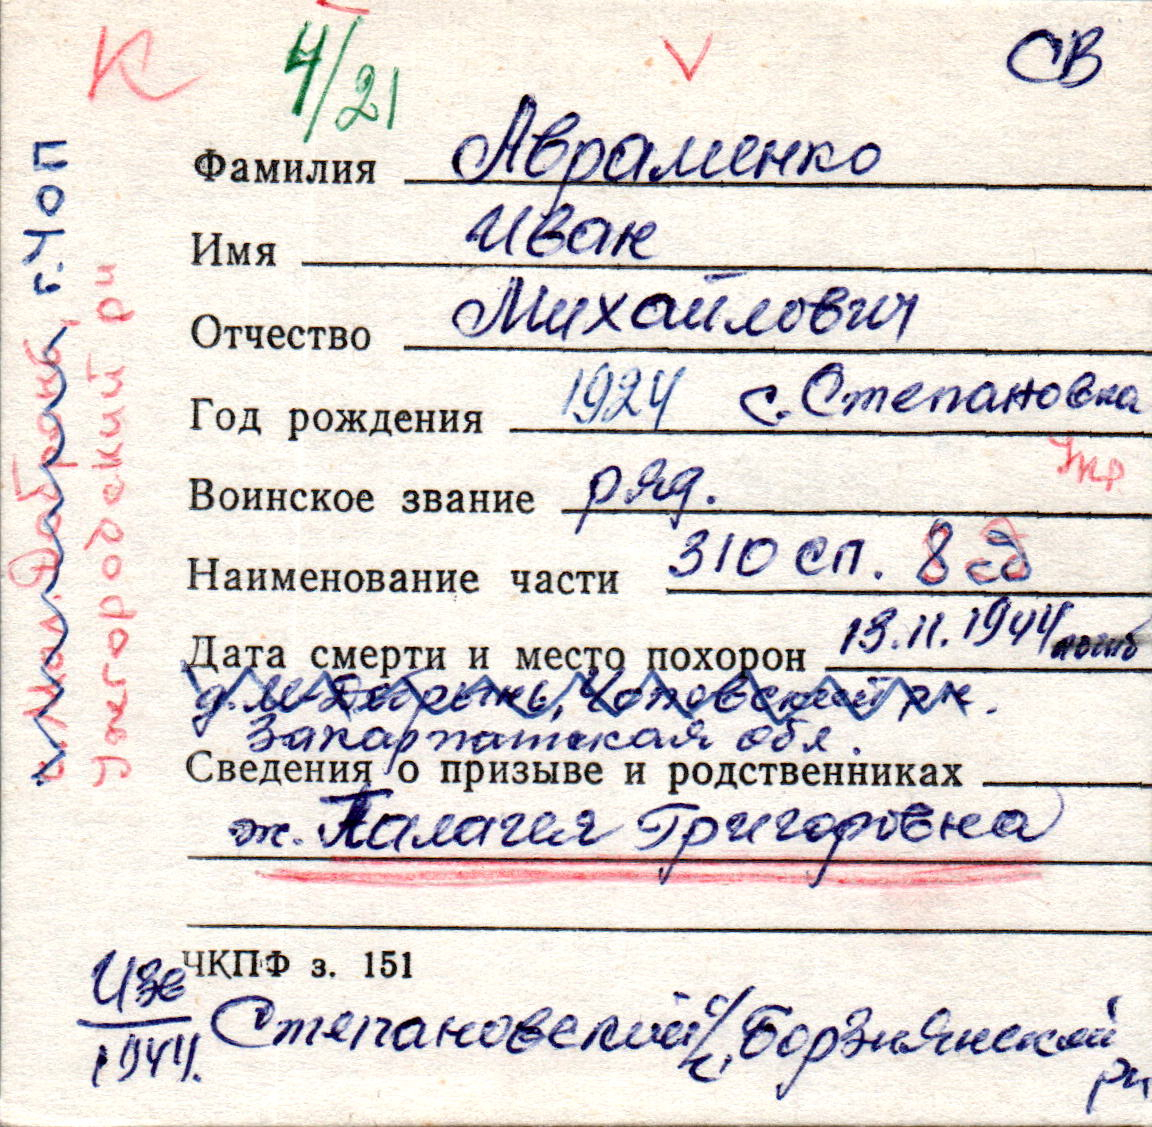 К 4/21 СВ
Фамилия Авраменко
Имя Иван
Отчество Михайлович
Год рождения 1924 с. Степановка
Воинское звание ряд.
Наименование части 310 сп. 8 сд
Дата смерти и место похорон 13.11.1944 погиб
Чоповский рн.
Закарпатская обл.
Сведения о призыве и родственниках
ж. Палагея Григоровна
ЧКПФ з. 151
Степановский с/с, Борзнянской
рн
1944.
г. Чоп
Ужгородский рн